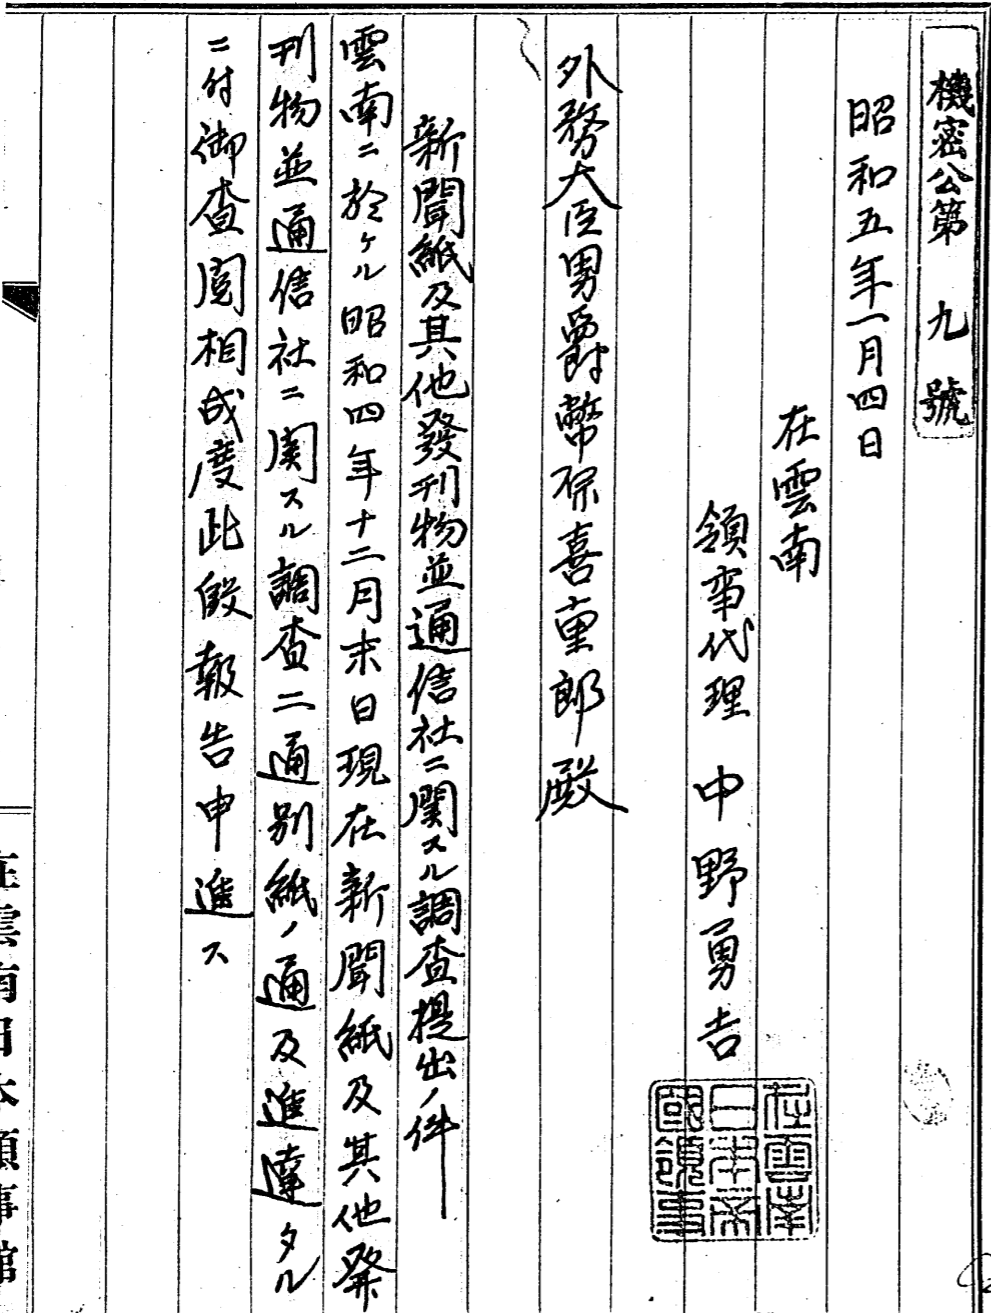 機密公第九號
昭和五年一月四日
在雲南
領事代理 中野勇吉
外務大臣男爵幣原喜重郎殿
新聞紙及其他發刊物並通信社ニ関スル調査提出ノ件
雲南ニ於ケル昭和四年十二月末日現在新聞紙及其他発
刊物並通信社ニ関スル調査二通別紙ノ通及進達タル
ニ付御査閲相成度此段報告申進ス
在雲南日本帝國領事
在雲南日本領事館